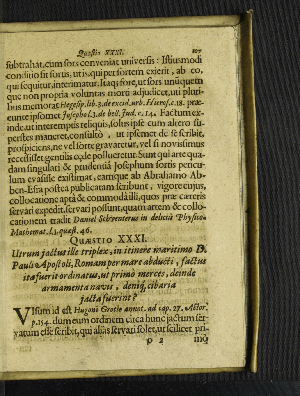 Quæstio XXXI. 107
subtrahat, cum sors conveniat universis: Istiusmodi
conditio sit sorus, ut is, qui per sortem exierit, ab eo,
qui sequitur, interimatur. Itaq; fore, ut sors unumquem
que non propria voluntas morti adjudicet, uti pluri-
bus memorat Hegesip. lib. 3. de excid. urb. Hieros. c. 18. præ-
eunte ipsomet Josepho l. 3. de bell. Jud. c. 14. Factum ex-
inde, ut interemptis reliquis, solus ipse cum altero su-
perstes maneret, consultò, ut ipsemet de se scribit,
prospiciens, ne vel sorte gravaretur, vel si novissimus
recessisset gentilis cæde pollueretur. Sunt qui arte qua-
dam singulari & prudentiâ Josephum sortis pericu-
lum evasisse existimant, eamque ab Abrahamo Ab-
ben-Esra postea publicatam scribunt, vigore cujus,
collocatione aptâ & commodâ illi, quos præ cæteris
servari expedit, servari possunt, quam artem & collo-
cationem tradit Daniel Schwenterus in deliciis Physico-
Mathemat. l. 1. quæst. 46.
QUÆSTIO XXXI.
Utrum jactus ille triplex, in itinere maritimo D.
Pauli Apostoli, Romam per mare abducti, factus
ita fuerit ordinatus, ut primò merces, deinde
armamenta navis, deniq; cibaria
jacta fuerint?
VIsum id est Hugoni Grotio annot. ad cap. 27. Actor.
p. 154. dum eum ordinem circa hunc jactum ser-
vatum esse scribit, qui aliàs servari solet, ut scilicet pri-
P 2 mù